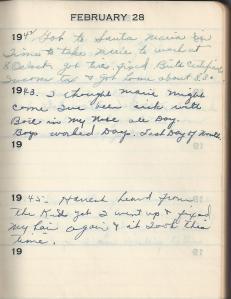 FEBRUARY 28
19 42 Got to Santa Maria on
Times to take Marie to work at
got tires fixed. Birth Certificate
Income Tax & got home about 8:30.
1943. I thought Marie might
come I've been sick with
Boil in my Nose all Day.
Boys worked Day. Last Day of Month.
19
19 45. Havent heard from
the Kids yet I went up & fixed
my hair again & it took this
time.
19